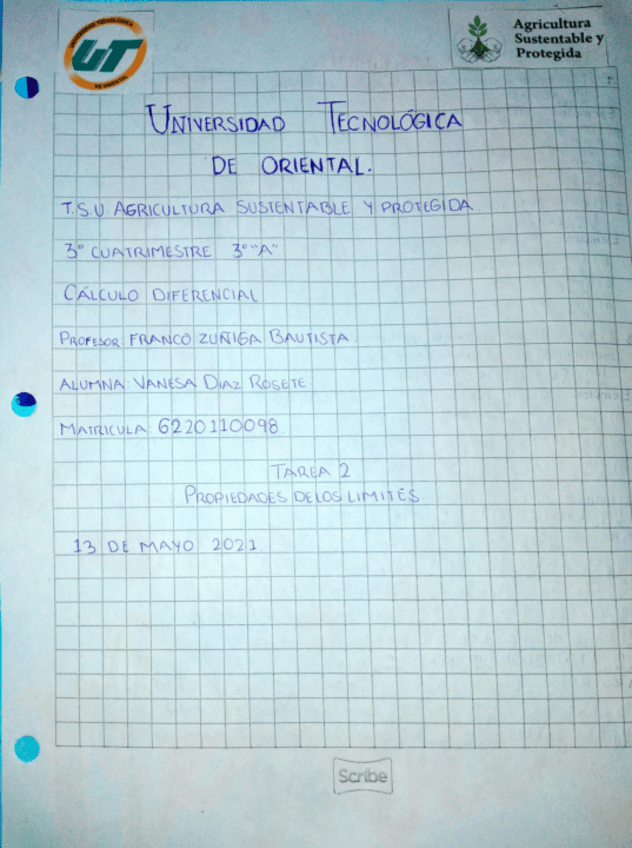 UNIVERSIDAD TECNOLÓGICA
DE ORIENTAL
Agricultura
Sustentable y
Protegida
UNIVERSIDAD TECNOLÓGICA
DE ORIENTAL.
T.S.U AGRICULTURA SUSTENTABLE Y PROTEGIDA.
3° CUATRIMESTRE 3° "A"
CÁLCULO DIFERENCIAL
PROFESOR: FRANCO ZUÑIGA BAUTISTA
ALUMNA: VANESA DIAZ ROSETE
MATRICULA: 6220110098
TAREA 2
PROPIEDADES DE LOS LIMITES
13 DE MAYO 2021
Scribe